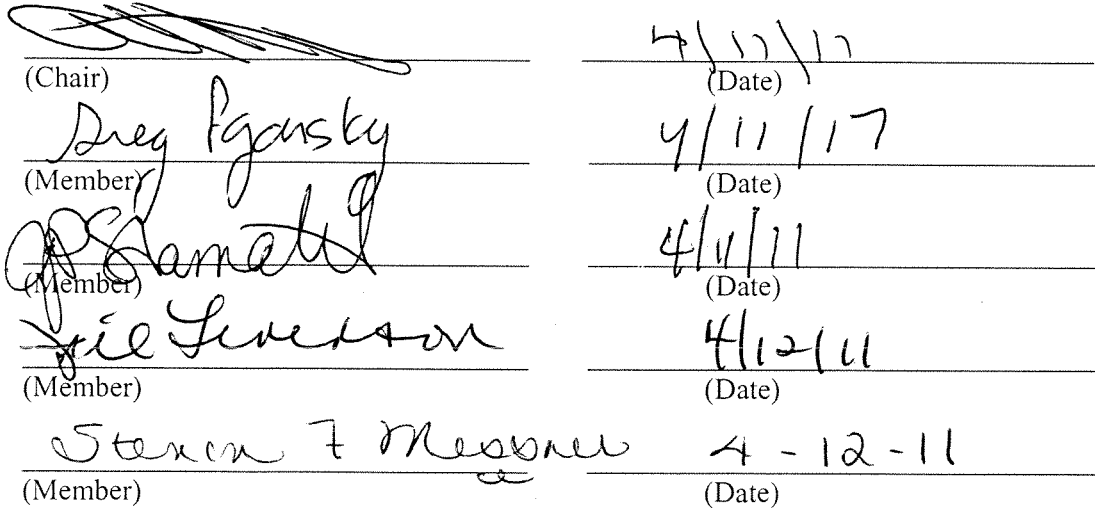 4/11/11
(Chair) (Date)
Greg Pogarsky 4/11/17
(Member) (Date)
4/11/11
(Member) (Date)
Leverson 4/12/11
(Member) (Date)
Steven F Messner 4-12-11
(Member) (Date)